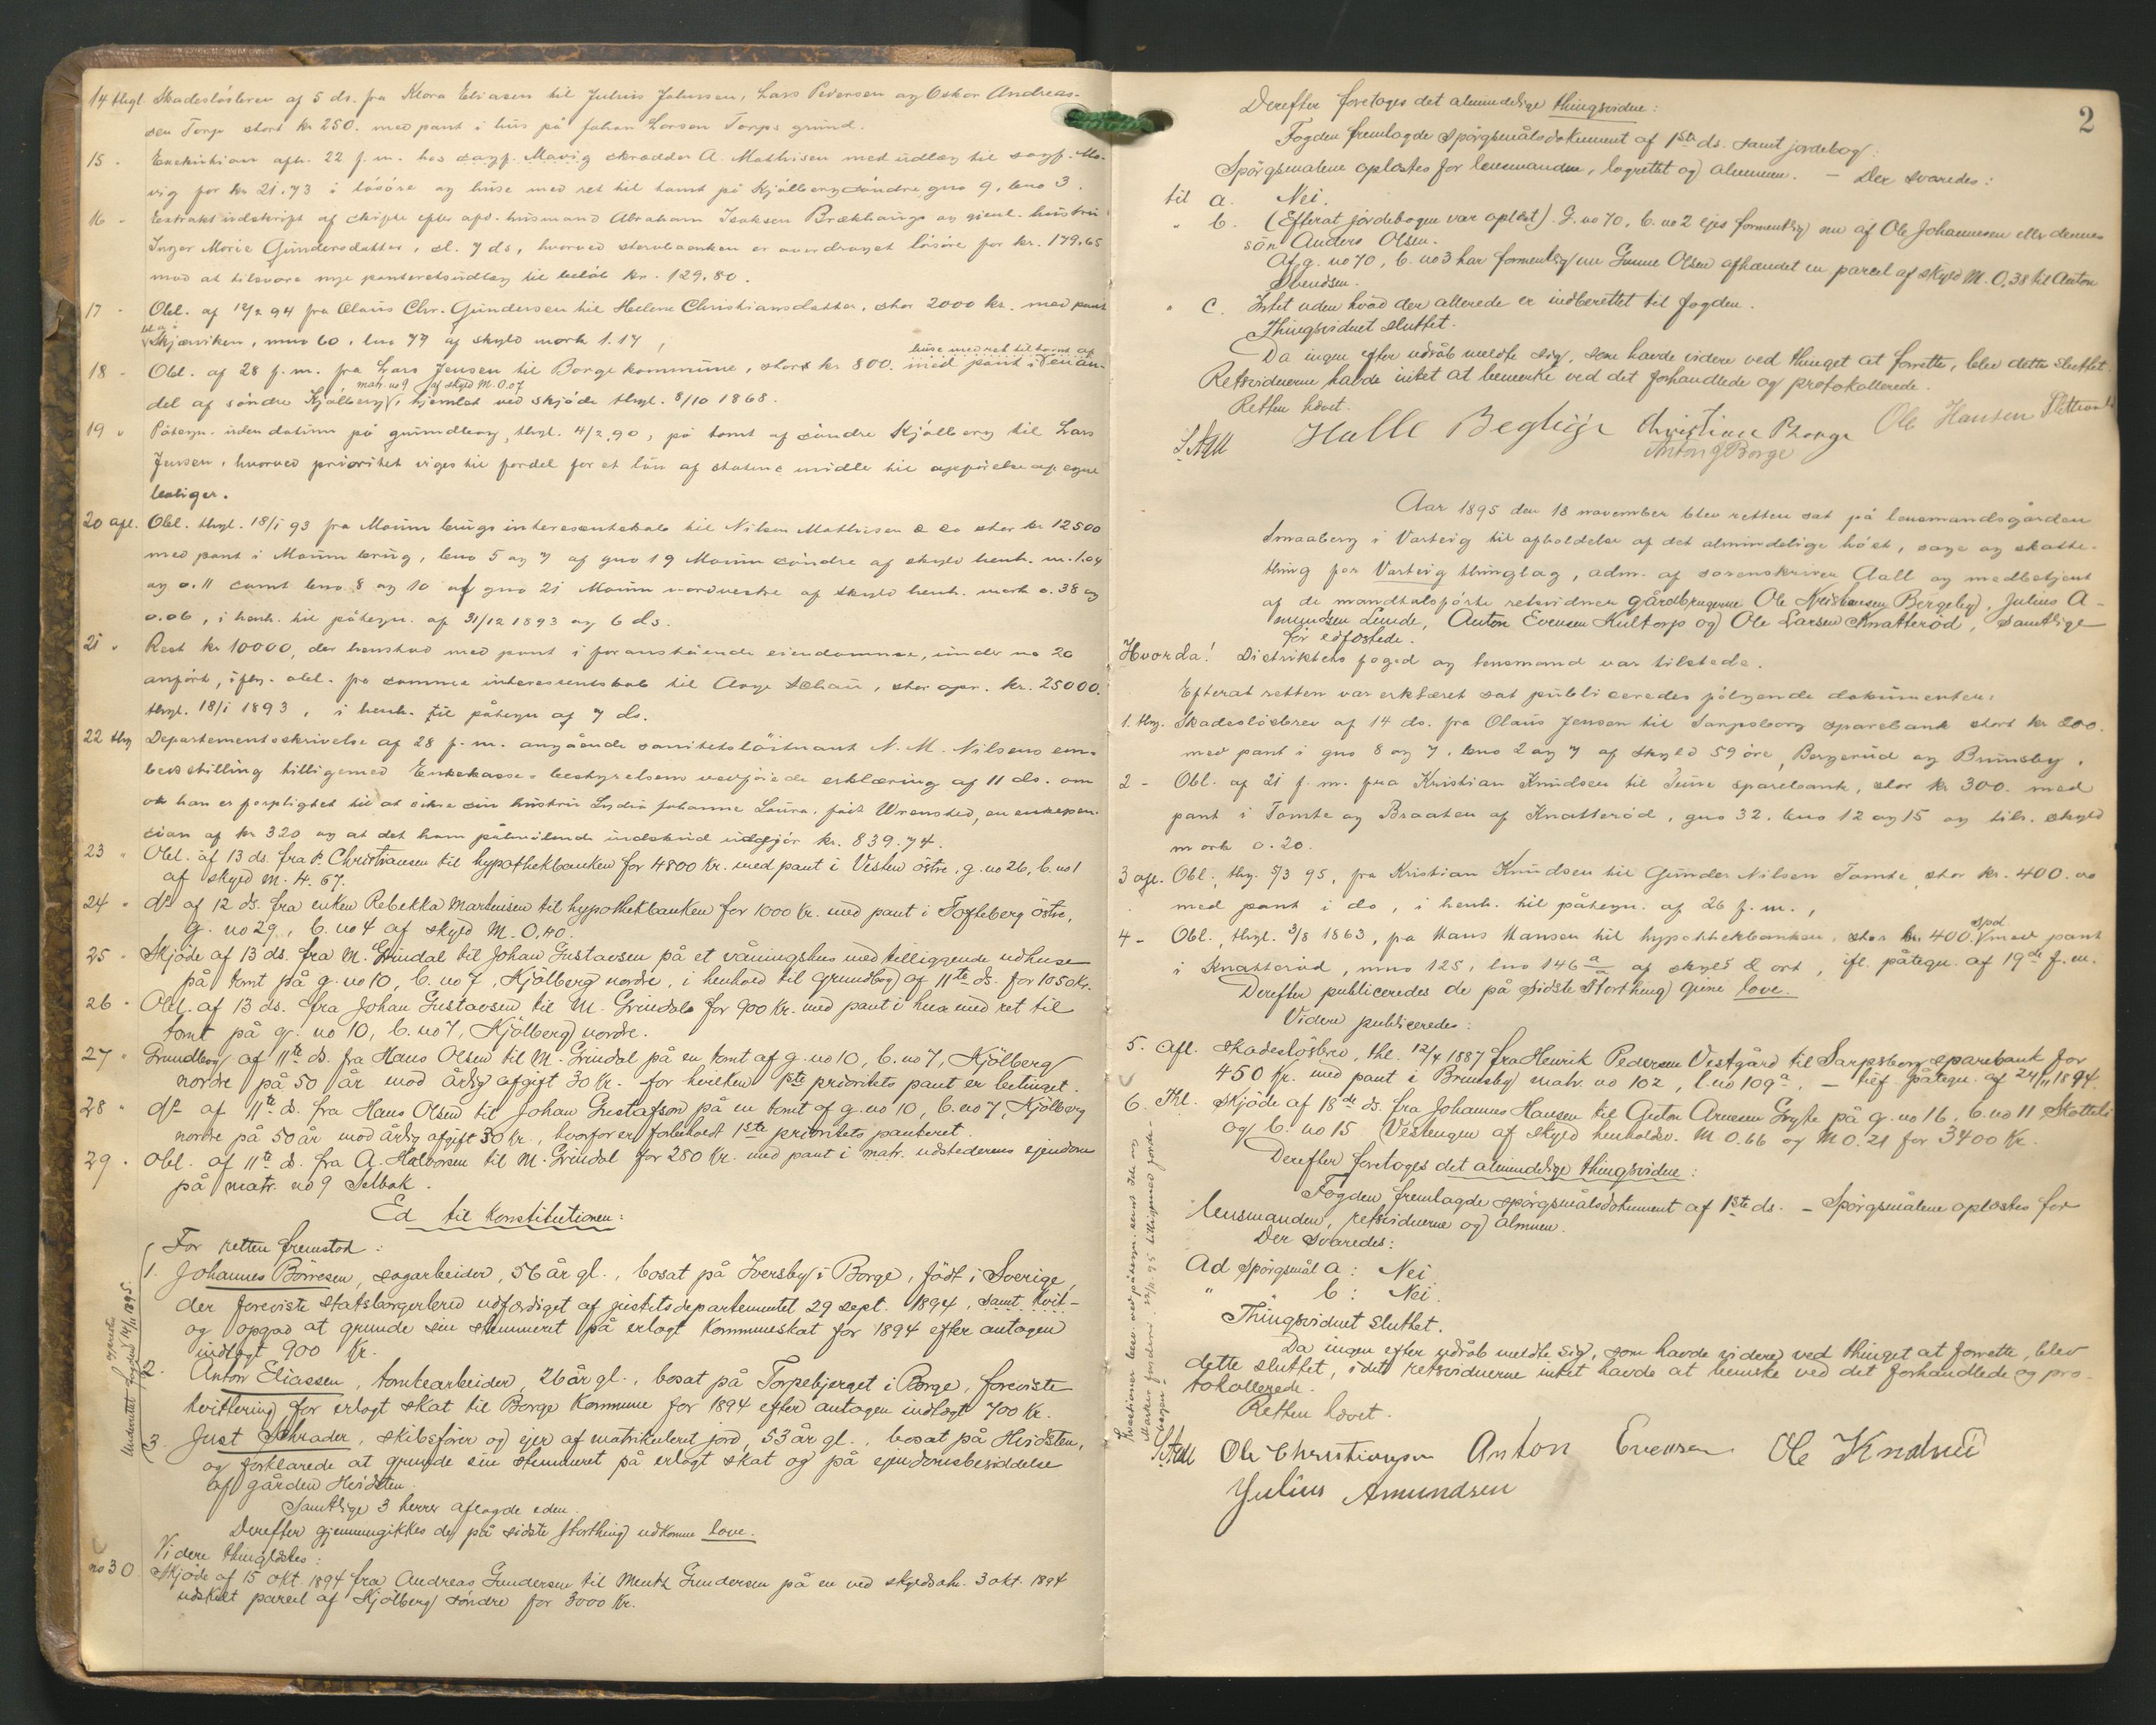 14 thgl. Skadeslösbrev af 5 ds. fra Klara Eliasen til Julius Johnsen, Lars Pedersen og Oskar Andreas-
sen Torp stort kr 250. med pant i hus på Johan Larsen Torps grund.
15 - Exekution afh. 22 f. m. hos sagf. Mavig skrædder A. Mathisen med udlæg til sagf. Ma-
vig for kr 21.73 i lösöre og huse med ret til tomt på Kjölberg söndre gno 9, bno 3.
16 - Extraktudskript af skifte efter afd. husmand Abraham Isaksen Brækkhaugs og gjenl. hustru
Inger Marie Gundersdatter, sl. 7 ds, hvorved stervboenken er overdraget lösöre for kr. 179.65
mod at tilsvare nye panteretsudlæg til beløb kr. 129.80.
17 - Obl. af 12/2 94 fra Olaus Chr. Gundersen til Helene Christiansdatter, stor 2000 kr. med pant
Skjærviken, mno 60, lno 77 af skyld mark 1.17,
18 - Obl. af 28 f. m. fra Lars Jensen til Borge kommune, stor kr 800. med pant i huse med ret til tomt af en an-
del af söndre Kjölberg, matr. no 9 af skyld M. 0.07 hjemlet ved skjöde thgl. 8/10 1868.
19 " Påtegn. uden datum på grundbrev, thgl. 4/2.90, på tomt af söndre Kjölberg til Lars
Jensen, hvorved prioritet viges til fordel for et lån af statens midler til opförelse af egne
boliger.
20 afl. Obl. thgl. 18/1 93 fra Moum brugs interessentskab til Nilsen Mathisen & Co stor kr 12500
med pant i Moum brug, bno 5 og 7 af gno 19 Moum söndre af skyld henh. m. 1.04
og 0.11 samt bno 8 og 10 af gno 21 Moum nordvestre af skyld henh. mark 0.38 og
0.06, i henh. til påtegn. af 31/12 1893 og 6 ds.
21 " Rest kr 10000, der henstod med pant i foranstående eiendomme, under no 20
anfört, ifl. obl. fra samme interessentskab til Aage Schau, stor opr. kr. 25000.
thgl. 18/1 1893, i henh. til påtegn af 7 ds.
22 thg Departementsskrivelse af 28 f. m. angående sanitetslöitnant N. M. Nilsens em-
bedsstilling tilligemed Enkekasse-bestyrelsens vedföiede erklæring af 11 ds. om
at han er forpligtet til at sikre sin hustru Lydia Johanne Laura, född Wrensted, en enkepen-
sion af kr 320 og at det ham påhvilende indskud udgjör kr. 839.74.
23 " Obl. af 13 ds. fra P. Christiansen til hypothekbanken for 4800 kr. med pant i Vesten östre, g. no 26, b. no 1
af skyld M. 4.67.
24 " do af 12 ds. fra enken Rebekka Martinsen til hypothekbanken for 1000 kr. med pant i Tofteberg östre,
g. no 29, b. no 4 af skyld M. 0,40.
25 " Skjöde af 13 ds. fra M. Grindal til Johan Gustavsen på et våningshus med tilliggende udhuse
på tomt på g. no 10, b. no 7, Kjölberg nordre, i henhold til grundbog af 11te ds. for 1050 kr.
26 " Obl. af 13 ds. fra Johan Gustavsen til M. Grindal for 900 kr. med pant i hus med ret til
tomt på g. no 10, b. no 7, Kjölberg nordre.
27 " Grundbog af 11te ds. fra Hans Olsen til M. Grindal på en tomt af g. no 10, b. no 7, Kjölberg
nordre på 50 år mod årlig afgift 30 Kr. for hvilken 1ste prioritets pant er betinget.
28 " do af 11te ds. fra Hans Olsen til Johan Gustafson på en tomt af g. no 10, b. no 7, Kjölberg
nordre på 50 år mod årlig afgift 30 kr., hvorfor er forbeholdt 1ste prioritets panteret.
29 . Obl. af 11te ds. fra A. Halvorsen til M. Grindal for 250 kr. med pant i matr. udstederens ejendom
på matr. no 9 Selbak.
Ed til Konstitutionen:
For retten fremstod:
1. Johannes Börresen, sagarbeider, 56 år gl., bosat på Iversby i Borge, född i Sverige,
der foreviste statsborgerbrev udfærdiget af justitsdepartementet 29 sept. 1894, samt kvit-
og opgav at grunde sin stemmeret på erlagt Kommuneskat for 1894 efter antagen
indtægt 900 kr.
2. Anton Eliassen, tomtearbeider, 26 år gl., bosat på Torpebjerget i Borge, foreviste
kvittering for erlagt skat til Borge Kommune for 1894 efter antagen indtægt 700 Kr.
3. Just Schrader, skibsförer og ejer af matrikuleret jord, 53 år gl., bosat på Hvidsten,
og forklarede at grunde sin stemmeret på erlagt skat og på ejendomsbesiddelse
af gården Hvidsten.
Samtlige 3 herrer aflagde eden.
Derefter gjennemgikkes de på sidste storthing udkomne love.
Videre thinglæstes:
no 30 Skjöde af 15 okt. 1894 fra Andreas Gundersen til Mentz Gundersen på en ved skyldsdeh. 3 okt. 1894
udskilt parcel af Kjölberg söndre for 3000 Kr.
Underrettet fogden 14/11 1895.
2
Derefter foretages det almindelige thingsvidne:
Fogden fremlagde spörgsmålsdokument af 1ste ds. samt jordebog.
Spörgsmålene oplæstes for lensmanden, lagrettet og almuen. - Der svaredes:
til a. Nei.
" b. (Efterat jordebogen var oplæst). G. no 70, b. no 2 ejes formentlig nu af Ole Johannesen eller dennes
sön Anders Olsen.
Af g. no 70, b. no 3 har formentlig nu Gunne Olsen afhændet en parcel af skyld M. 0.38 til Anton
Svendsen.
" c. Intet uden hvad der allerede er indberettet til fogden.
Thingsvidnet sluttet.
Da ingen efter udråb meldte sig, som havde videre ved thinget at forrette, blev dette sluttet.
Retsvidnerne havde intet at bemerke ved det forhandlede og protokollerede.
Retten hævet.
S. Aall Halle Begby Christian Borge Ole Hansen
Anton G Borge
Aar 1895 den 18 november blev retten sat på lensmandsgården
Smaaberg i Varteig til afholdelse af det almindelige höst, sage og skatte-
thing for Varteig thinglag, adm. af sorenskriver Aall og medbetjent
af de mandtalsförte retsvidner gårdbrugerne Ole Kristiansen Bergeby, Julius A-
mundsen Lunde, Anton Evensen Hultorp og Ole Larsen Knatteröd, samtlige
för edfæstede.
Hvorda! Distriktets foged og lensmand var tilstede.
Efterat retten var erklæret sat publiceredes fölgende dokumenter:
1. thg. Skadeslösbrev af 14 ds. fra Olaus Jensen til Sarpsborg sparebank stort kr 200.
med pant i gno 8 og 7, bno 2 og 7 af skyld 59 öre, Bergerud og Brunsby.
2 - Obl. af 21 f. m. fra Kristian Knudsen til Tune sparebank, stor kr 300. med
pant i Tomte og Braaten af Knatteröd, gno 32, bno 12 og 15 og tils. skyld
mark 0.20.
3 afl. Obl., thg. 5/3 95, fra Kristian Knudsen til Gunder Nilsen Tomte, stor kr. 400. oo
med pant i do, i henh. til påtegn. af 26 f. m.,
4 - Obl., thgl. 3/8 1863, fra Hans Hansen til hypothekbanken, stor 400 spd. med pant
i Knatteröd, mno 125, lno 146 a/a af skyld 2 ort, ifl. påtegn. af 19de f. m.
Derefter publiceredes de på sidste storthing givne love.
Videre publiceredes:
5. Afl. Skadeslösbrev, thl. 12/4 1887 fra Henrik Pedersen Vestgård til Sarpsborg sparebank for
450 Kr. med pant i Brunsby matr. no 102, l. no 109a. - tilf. påtegn. af 24/11 1894.
6. Thl. Skjöde af 18de ds. fra Johannes Hansen til Anton Arnesen Gryte på g. no 16, b. no 11 Skatteli
og b. no 15 Vestengen af skyld henholdsv. M 0.66 og M 0.21 for 3400 Kr.
Derefter foretages det almindelige thingsvidne:
Fogden fremlagde spörgsmålsdokument af 1ste ds. - Spörgsmålene oplæstes for
lensmanden, retsvidnerne og almuen.
Der svaredes:
Ad spörgsmål a: Nei.
" " b: Nei.
Thingsvidnet sluttet.
Da ingen efter udråb meldte sig, som havde videre ved thinget at forrette, blev
dette sluttet, idet retsvidnerne intet havde at bemerke ved det forhandlede og pro-
tokollerede.
Retten hævet.
S. Aall Ole Christiansen Anton Evensen Ole Knatterö
Julius Amundsen